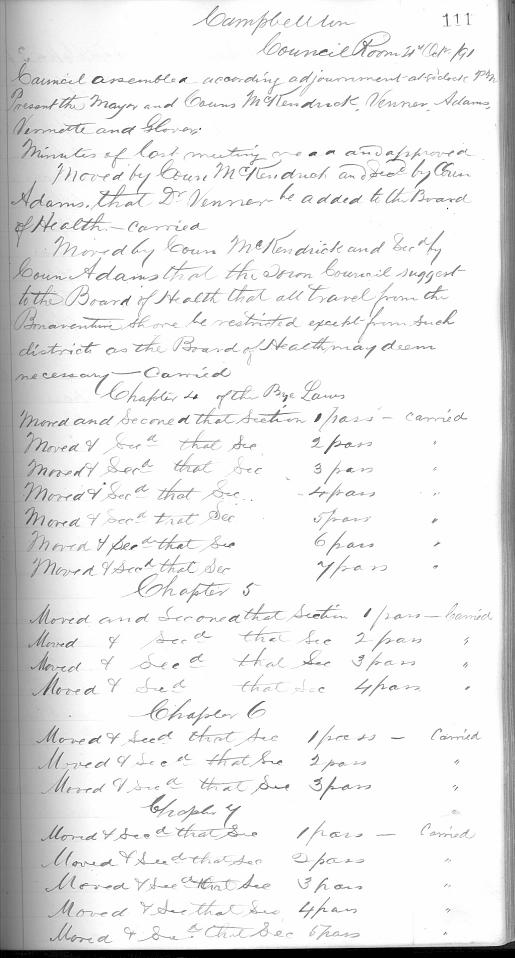 111
Campbellton
Council Room 21st Oct /91
Council assembled according adjournment at 8 o'clock P.M.
Present the Mayor and Couns McKendrick, Venner, Adams,
Vermette and Glover.
Minutes of last meeting read and approved
Moved by Coun McKendrick and Secd by Coun
Adams, that Dr Venner be added to the Board
of Health. – carried
Moved by Coun McKendrick and Secd by
Coun Adams that the Town Council suggest
to the Board of Health that all travel from the
Bonaventure Shore be restricted except from such
districts as the Board of Health may deem
necessary – Carried
Chapter 4 of the Bye Laws
Moved and Seconed that Section 1 pass – carried
Moved & Secd that Sec 2 pass "
Moved & Secd that Sec 3 pass "
Moved & Secd that Sec. 4 pass "
Moved & Secd that Sec 5 pass "
Moved & Secd that Sec 6 pass "
Moved & Secd that Sec 7 pass "
Chapter 5
Moved and Seconed that Section 1 pass – Carried
Moved & Secd that Sec 2 pass "
Moved & Secd that Sec 3 pass "
Moved & Secd that Sec 4 pass "
Chapter 6
Moved & Secd that Sec 1 pass – Carried
Moved & Secd that Sec 2 pass "
Moved & Secd that Sec 3 pass "
Chapter 7
Moved & Secd that Sec 1 pass – Carried
Moved & Secd that Sec 2 pass "
Moved & Secd that Sec 3 pass "
Moved & Sec that Sec 4 pass "
Moved & Secd that Sec 5 pass "